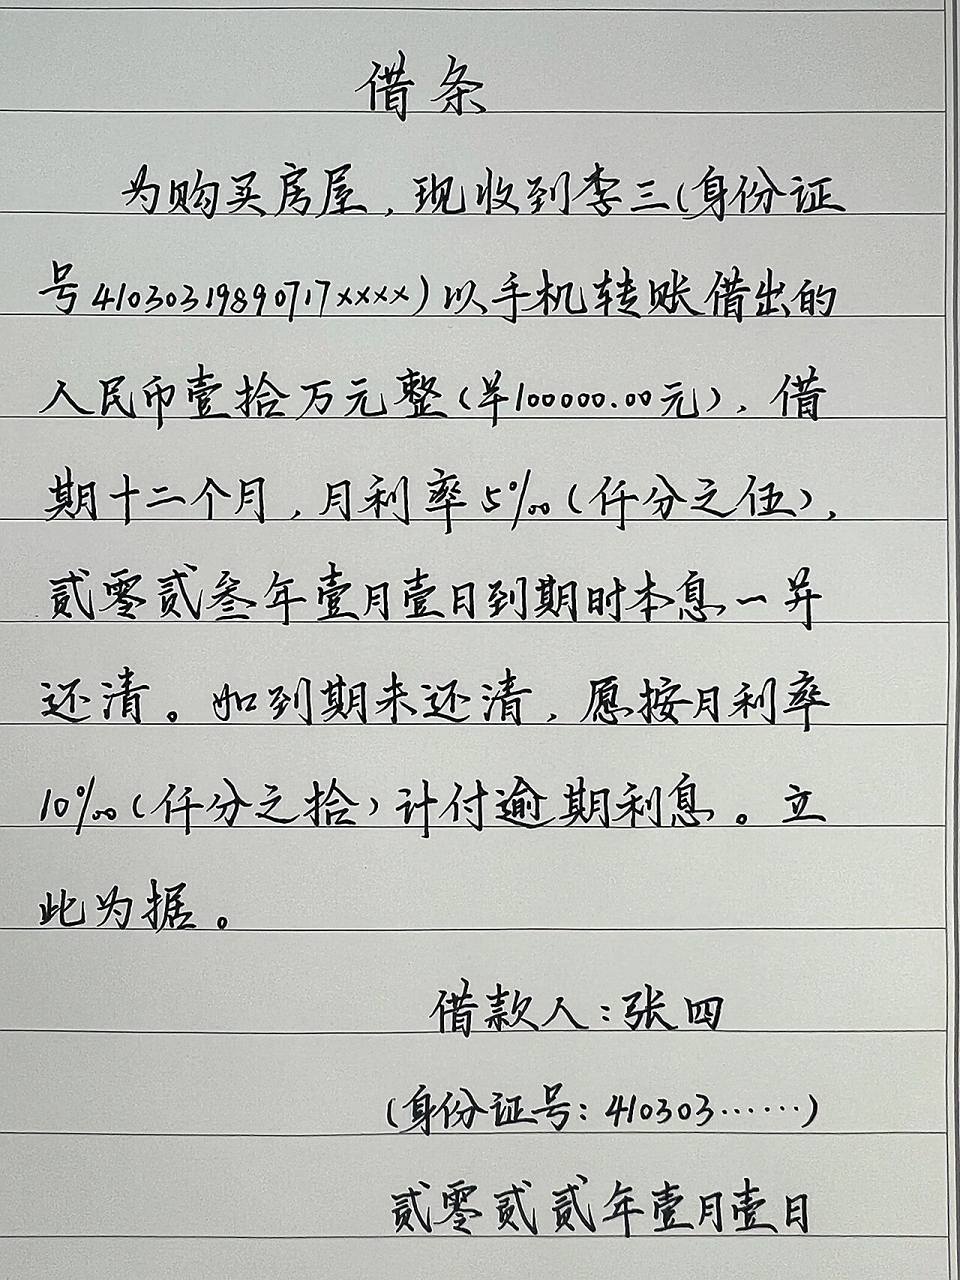 借条
为购买房屋，现收到李三(身份证
号41030319890717xxxx)以手机转账借出的
人民币壹拾万元整(¥100000.00元)，借
期十二个月，月利率5‰(仟分之伍)，
贰零贰叁年壹月壹日到期时本息一并
还清。如到期未还清，愿按月利率
10‰(仟分之拾)计付逾期利息。立
此为据。
借款人：张四
(身份证号：410303……)
贰零贰贰年壹月壹日